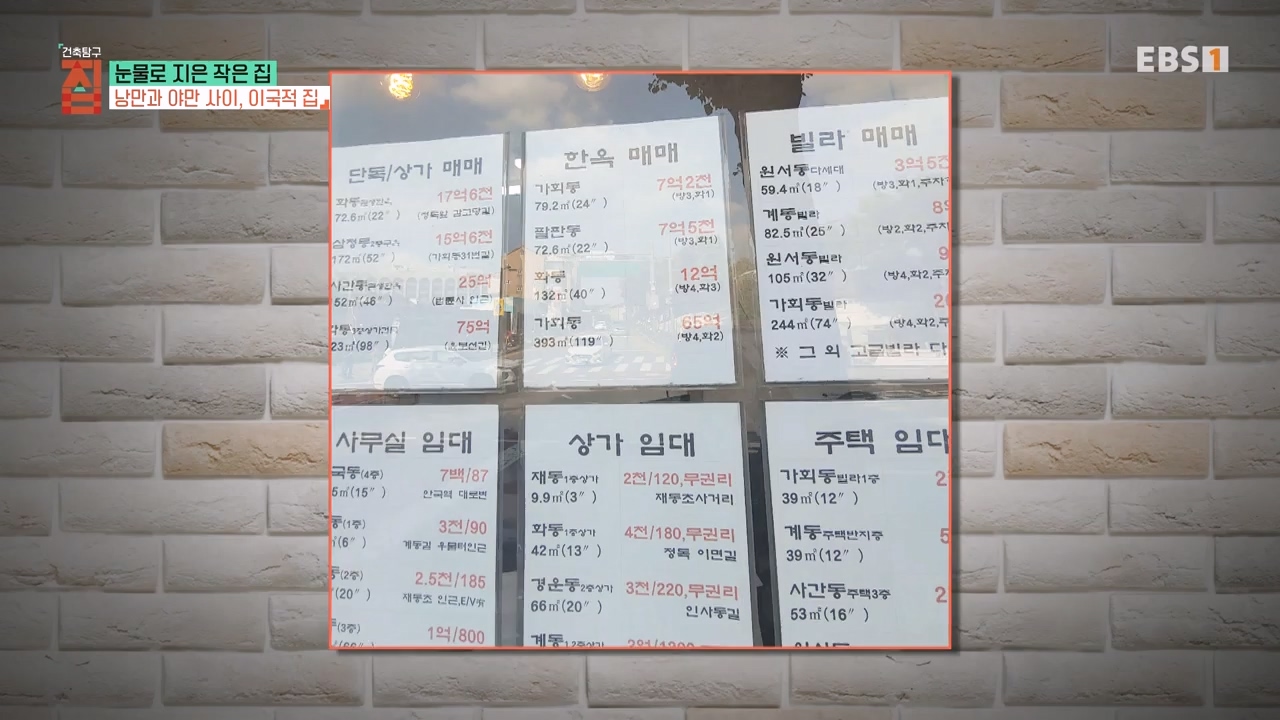 건축탐구
집
눈물로 지은 작은 집
낭만과 야만 사이, 이국적 집
EBS1
단독/상가 매매
화동
17억6천
72.6㎡(22" )
(정독앞 감고당길)
삼청동
15억6천
172㎡(52" )
(가회동31번길)
사간동
25억
52㎡(46" )
75억
23㎡(98" )
한옥 매매
가회동
7억2천
79.2㎡(24" )
(방3,화1)
팔판동
7억5천
72.6㎡(22" )
(방3,화1)
화동
12억
132㎡(40" )
(방4,화3)
가회동
65억
393㎡(119" )
(방4,화2)
빌라 매매
원서동다세대
3억5천
59.4㎡(18" )
(방3,화1,주차
계동빌라
8
82.5㎡(25" )
(방2,화2,주차
원서동빌라
9
105㎡(32" )
(방4,화2,주
가회동빌라
244㎡(74" )
(방4,화2,주
※ 그 외 고급빌라 다
사무실 임대
국동(4층)
7백/87
5㎡(15" )
안국역 대로변
동(1층)
3천/90
(6" )
계동길 우물터인근
(2층)
2.5천/185
(20" )
재동초 인근,E/V有
(3층)
1억/800
상가 임대
재동1층상가
2천/120,무권리
9.9㎡(3" )
재동초사거리
화동1층상가
4천/180,무권리
42㎡(13" )
정독 이면길
경운동2층상가
3천/220,무권리
66㎡(20" )
인사동길
계동1,2층상가
주택 임대
가회동빌라1층
2
39㎡(12" )
계동주택반지층
5
39㎡(12" )
사간동주택3층
2
53㎡(16" )